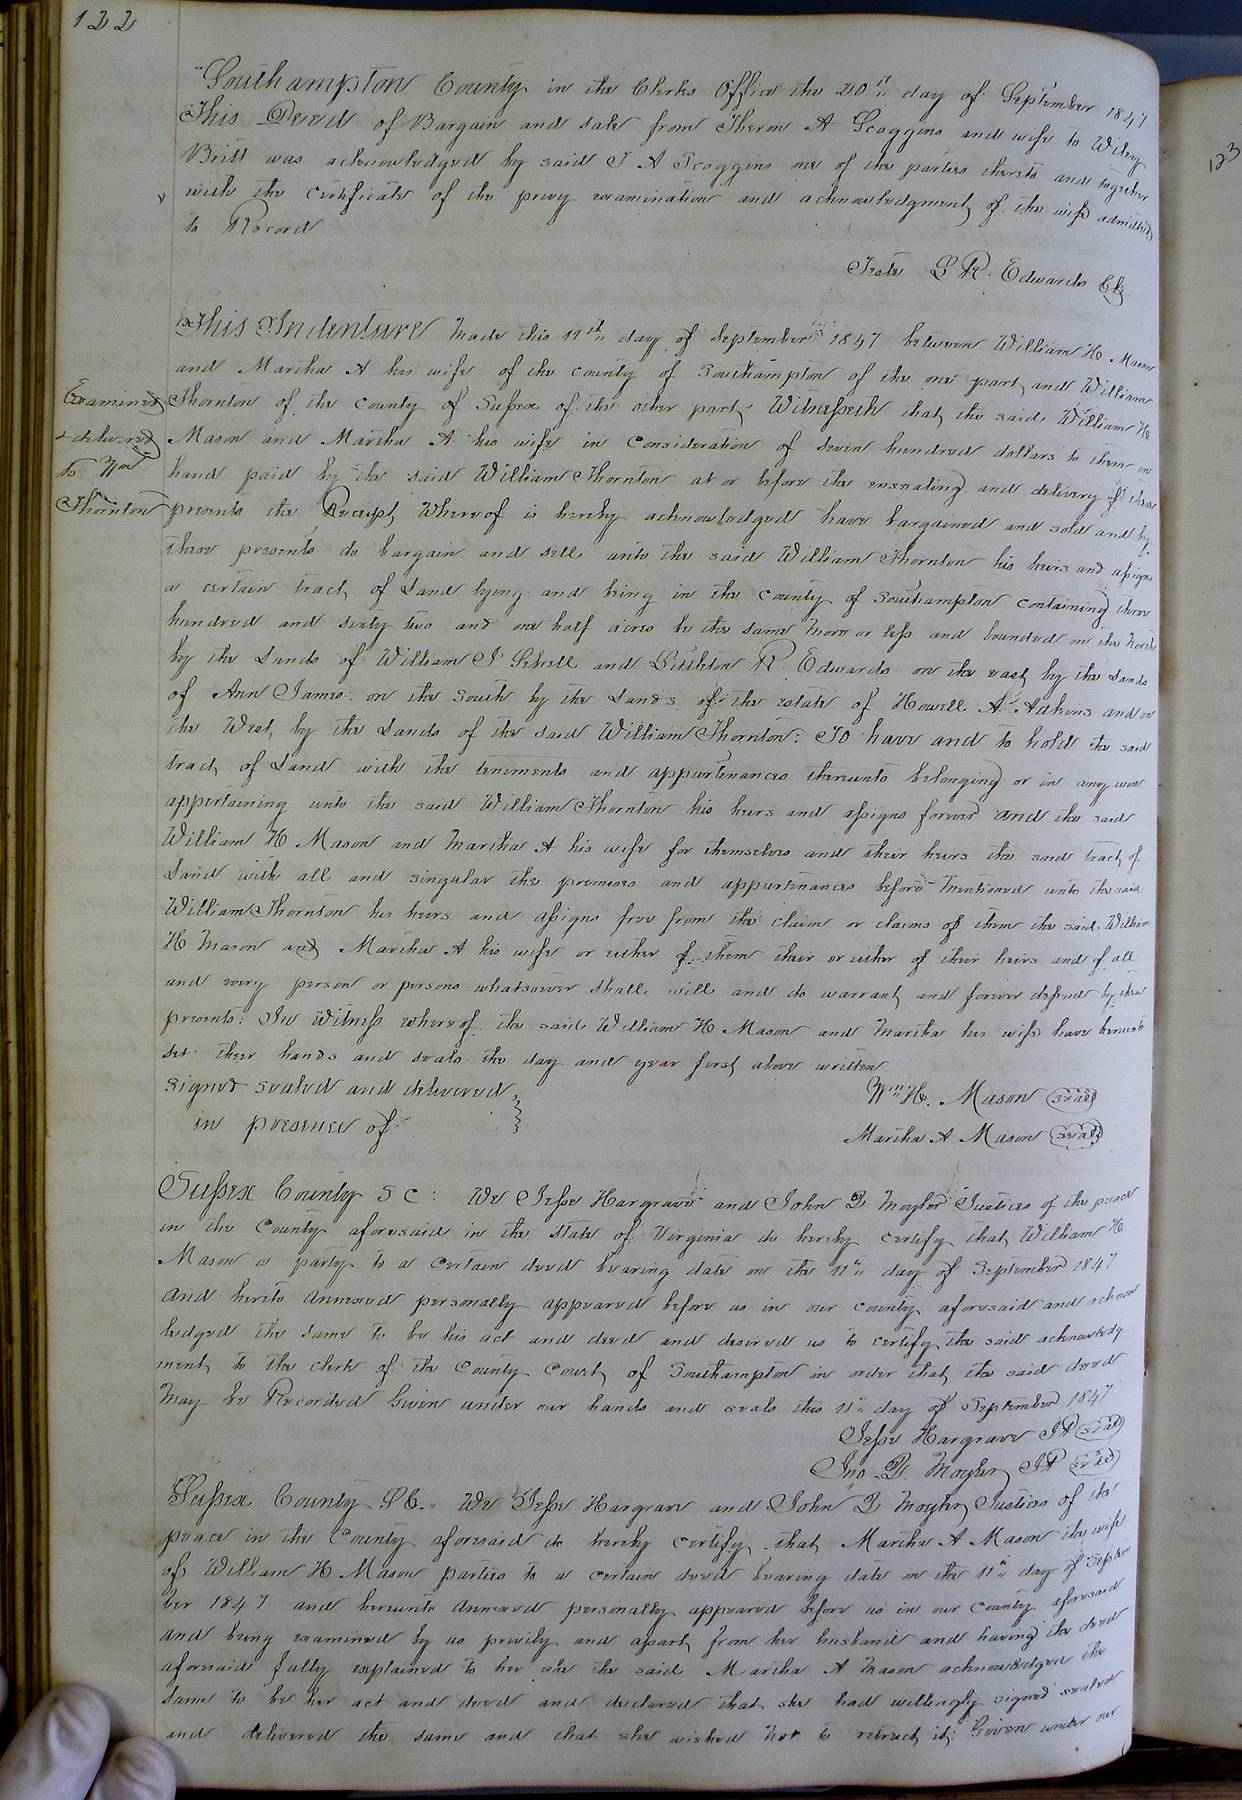 122
Southampton County in the Clerks Office the 20th day of September 1847
This Deed of Bargain and sale from Theron A Scoggins and wife to Wiley
Britt was acknowledged by said T A Scoggins one of the parties thereto and together
with the certificate of the privy examination and acknowledgment of the wife admitted
to Record
Teste L R. Edwards Clk
This Indenture Made this 11th day of September 1847 between William H Mason
and Martha A his wife of the county of Southampton of the one part and William
Thornton of the county of Sussex of the other part, Witnesseth that the said William H
Mason and Martha A his wife in consideration of seven hundred dollars to them in
hand paid by the said William Thornton at or before the ensealing and delivery of these
presents the Receipt Whereof is hereby acknowledged have bargained and sold and by
these presents do bargain and sell unto the said William Thornton his heirs and assigns
a certain tract of Land lying and being in the county of Southampton containing three
hundred and sixty two and one half acres be the same more or less and bounded on the North
by the Lands of William J Sebrell and Littleton R Edwards on the east by the Lands
of Ann James on the South by the Lands of the estate of Howell A Adkins and on
the West by the Lands of the said William Thornton: To have and to hold the said
tract of Land with the tenements and appurtenances thereunto belonging or in any wise
appertaining unto the said William Thornton his heirs and assigns forever and the said
William H Mason and Martha A his wife for themselves and their heirs the said tract of
Land with all and singular the premises and appurtenances before mentioned unto the said
William Thornton his heirs and assigns free from the claim or claims of them the said William
H Mason and Martha A his wife or either of them their or either of their heirs and of all
and every person or persons whatsoever shall will and do warrant and forever defend by these
presents: In Witness whereof the said William H Mason and Martha his wife have hereunto
set their hands and seals the day and year first above written
signed sealed and delivered
in presence of
Wm H. Mason seal
Martha A Mason seal
Examined
& delivered
to Wm
Thornton
Sussex County SC: We Jesse Hargrave and John D Moyler Justices of the peace
in the County aforesaid in the State of Virginia do hereby certify that William H
Mason a party to a certain deed bearing date on the 11th day of September 1847
And hereto annexed personally appeared before us in our county aforesaid and acknow
ledged the same to be his act and deed and desired us to certify the said acknowledg
ment to the clerk of the County Court of Southampton in order that the said deed
may be Recorded Given under our hands and seals this 11th day of September 1847
Jesse Hargrave JP seal
Jno D. Moyler JP seal
Sussex County SC. We Jesse Hargrave and John D Moyler Justices of the
peace in the County aforesaid do hereby certify that Martha A Mason the wife
of William H Mason parties to a certain deed bearing date on the 11th day of Septem
ber 1847 and hereunto annexed personally appeared before us in our County aforesaid
and being examined by us privily and apart from her husband and having the deed
aforesaid fully explained to her she the said Martha A Mason acknowledged the
same to be her act and deed and declared that she had willingly signed sealed
and delivered the same and that she wished not to retract it: Given under our
123